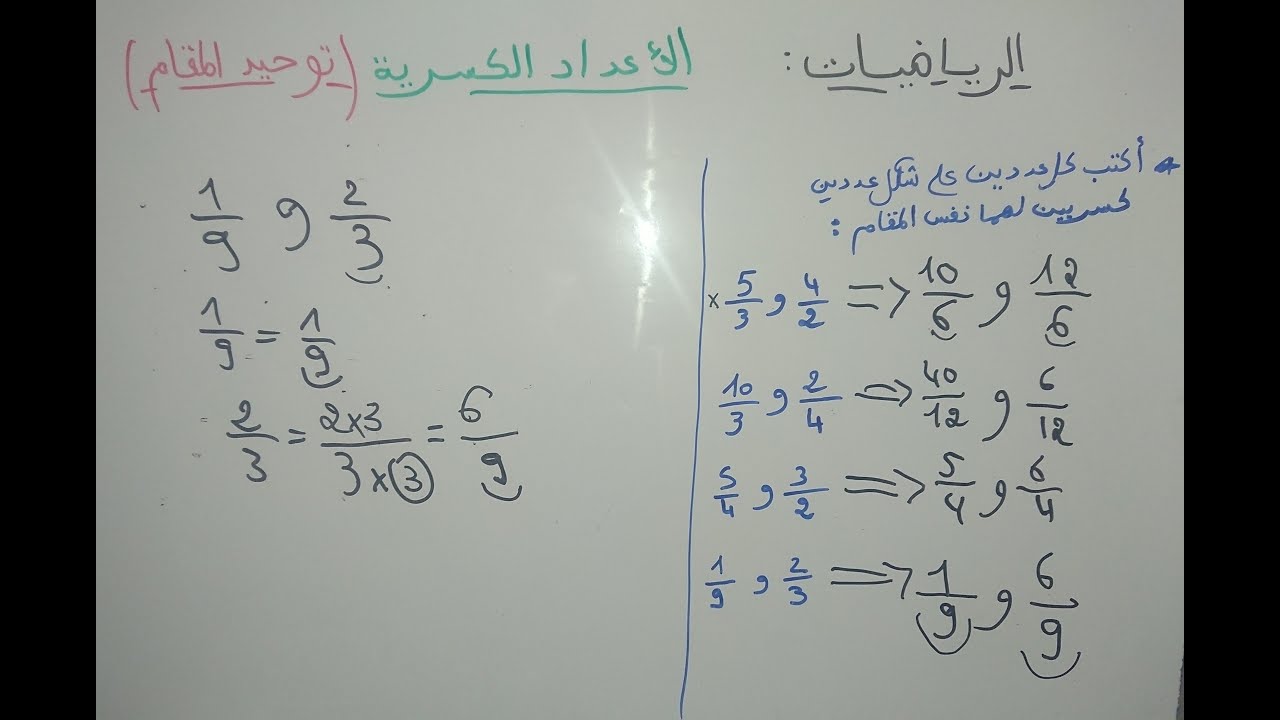 الرياضيات: الأعداد الكسرية (توحيد المقام)
أكتب كل عددين على شكل عددين
كسريين لهما نفس المقام:
× 5/3 و 4/2 => 10/6 و 12/6
10/3 و 2/4 => 40/12 و 6/12
5/4 و 3/2 => 5/4 و 6/4
1/9 و 2/3 => 1/9 و 6/9
1/9 و 2/3
1/9 = 1/9
2/3 = 2×3/3×3 = 6/9